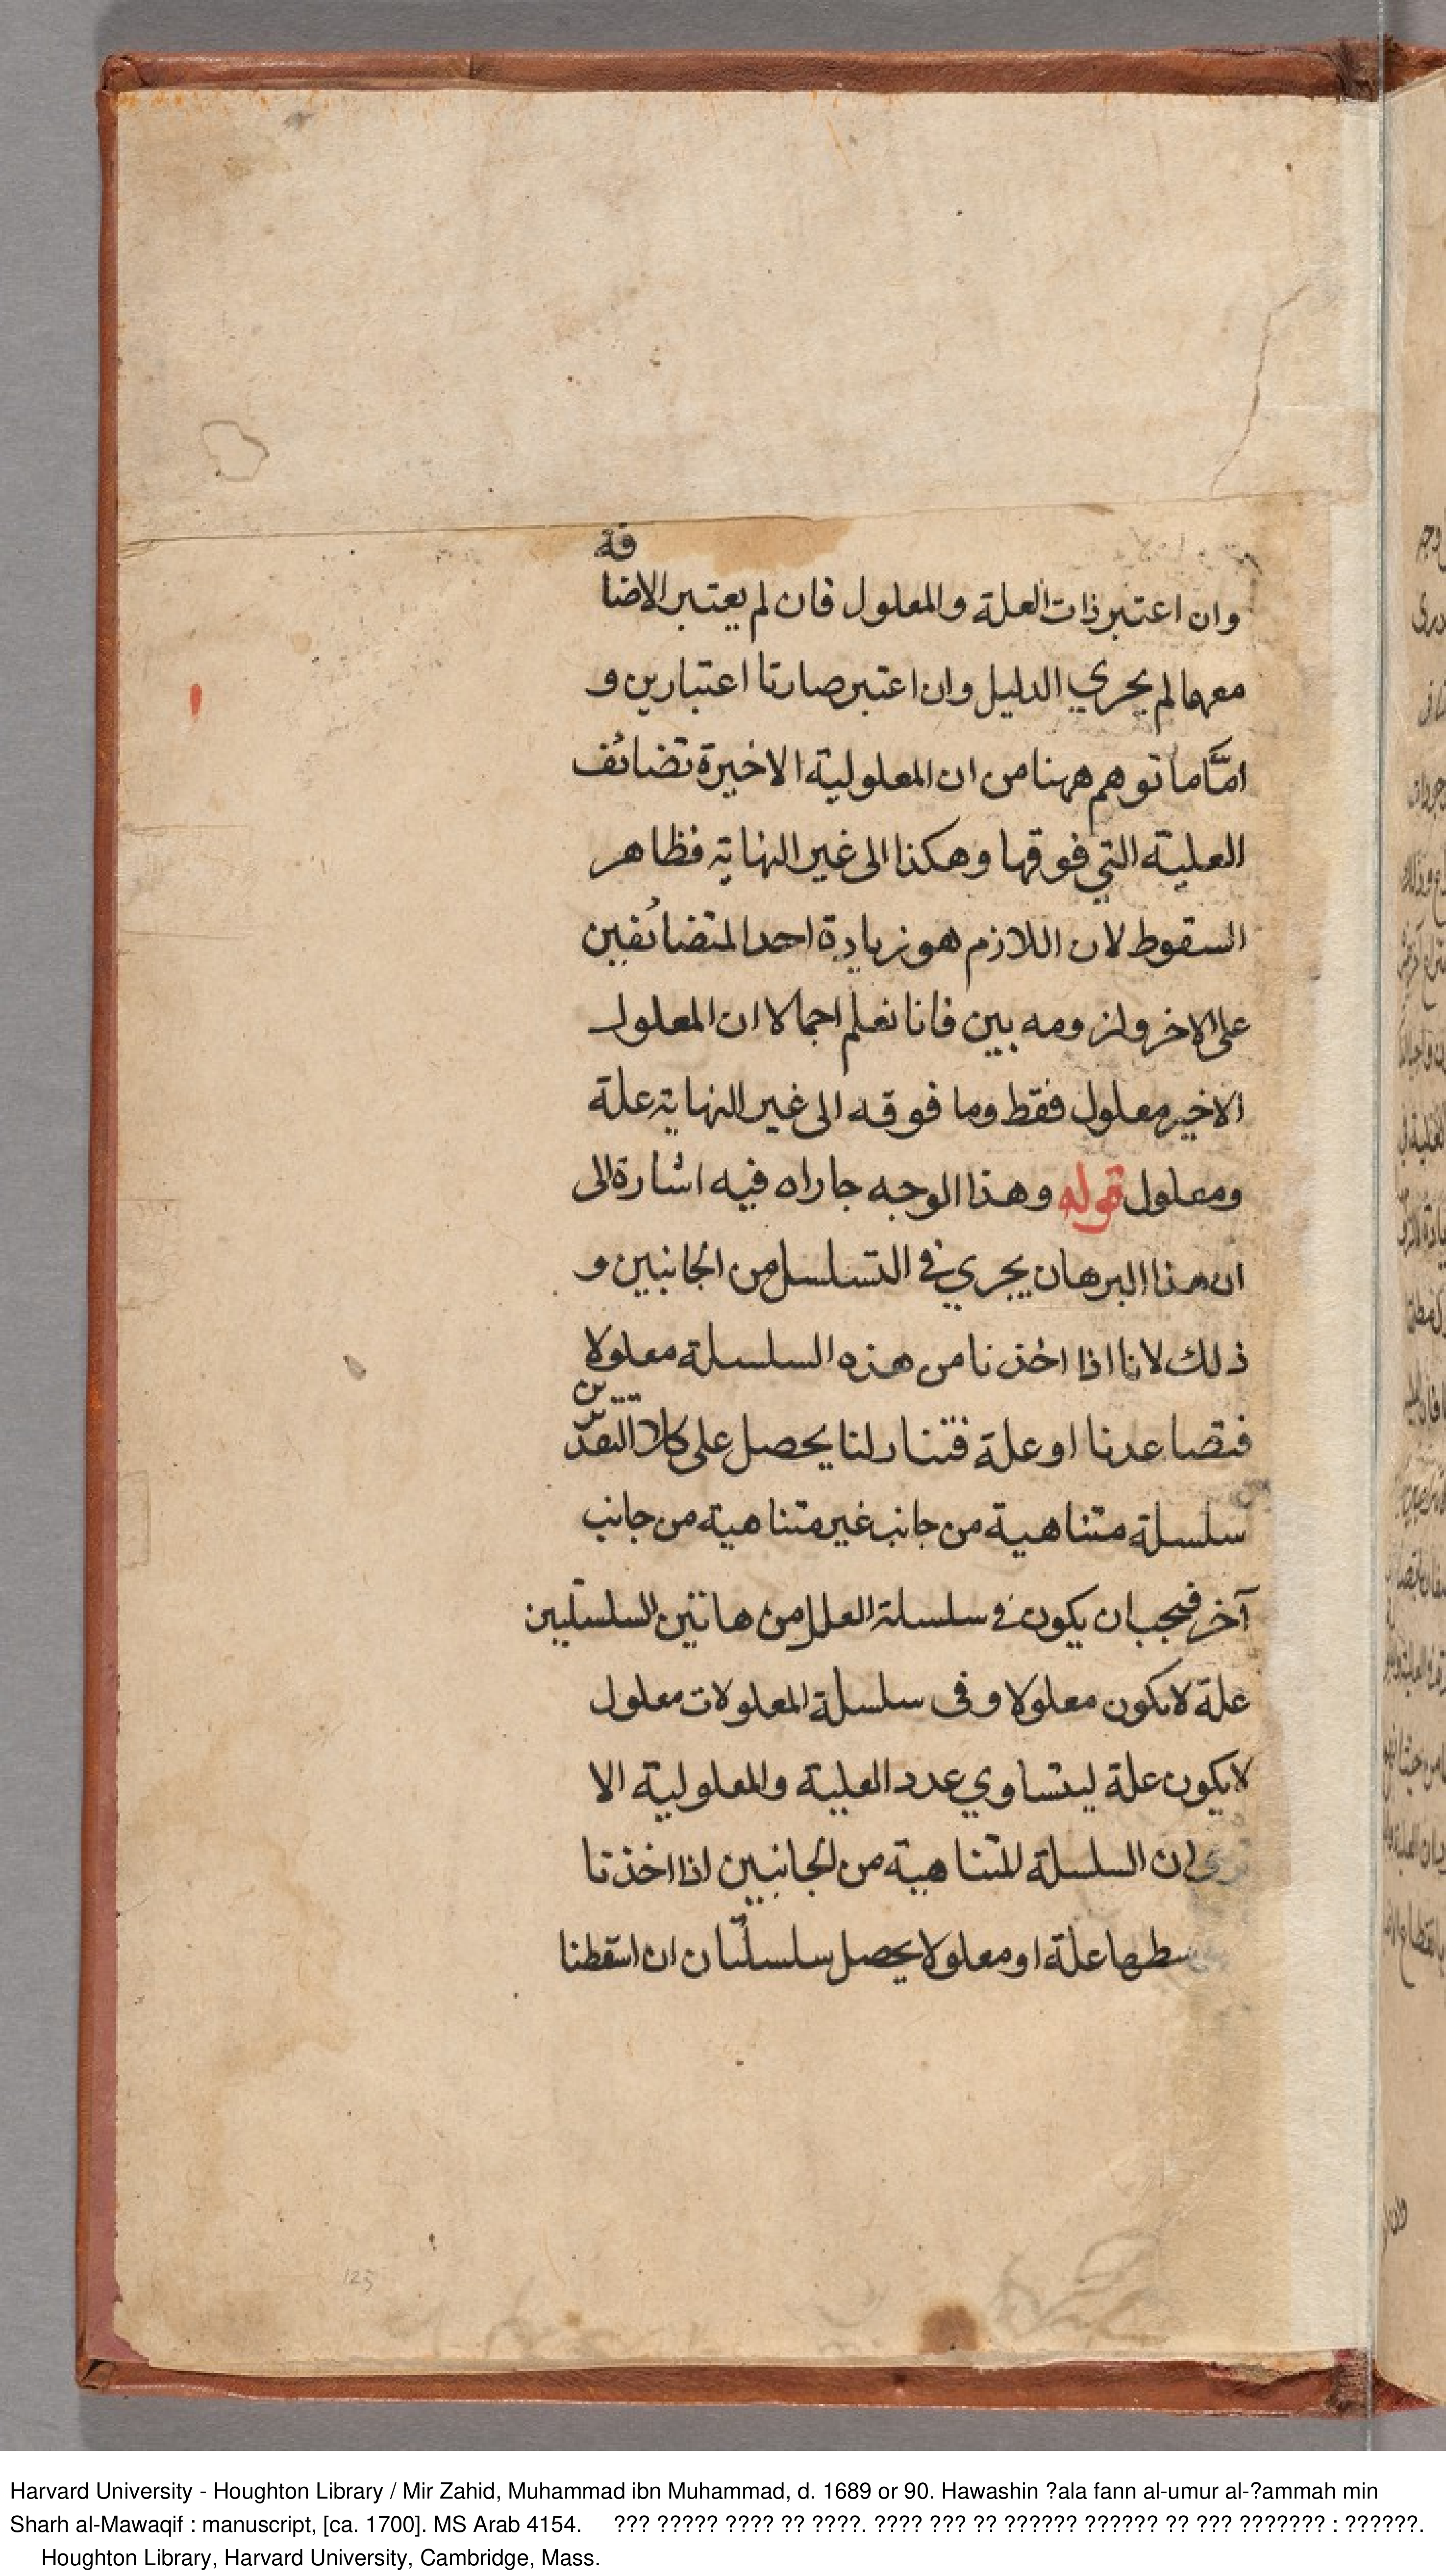 وان اعتبر ذات العلة والمعلول فان لم يعتبر الاضافة
معهما لم يجري الدليل وان اعتبر صارتا اعتبارين و
امَّا ما توهم ههنا من ان المعلولية الاخيرة تضائف
العلية التي فوقها وهكذا الى غير النهاية فظاهر
السقوط لان اللازم هو زيادة احد المتضائفين
على الاخر ولزومه بين فانا نعلم اجمالا ان المعلول
الاخير معلول فقط وما فوقه الى غير النهاية علة
ومعلول قوله وهذا الوجه جاراه فيه اشارة الى
ان هذا البرهان يجري في التسلسل من الجانبين و
ذلك لانا اذا اخذنا من هذه السلسلة معلولا
فتصاعدنا او علة فتنازلنا يحصل على كلا التقديرين
سلسلة متناهية من جانب غير متناهية من جانب
آخر فيجب ان يكون في سلسلة العلل من هاتين السلسلتين
علة لا يكون معلولا وفى سلسلة المعلولات معلول
لا يكون علة ليتساوي عدد العلية والمعلولية الا
ترى ان السلسلة المتناهية من الجانبين اذا اخذنا
علة او معلولا يحصل سلسلتان ان اسقطنا
125
Harvard University - Houghton Library / Mir Zahid, Muhammad ibn Muhammad, d. 1689 or 90. Hawashin ?ala fann al-umur al-?ammah min
Sharh al-Mawaqif : manuscript, [ca. 1700]. MS Arab 4154. ??? ????? ???? ?? ????. ???? ??? ?? ?????? ?????? ?? ??? ??????? : ??????.
Houghton Library, Harvard University, Cambridge, Mass.